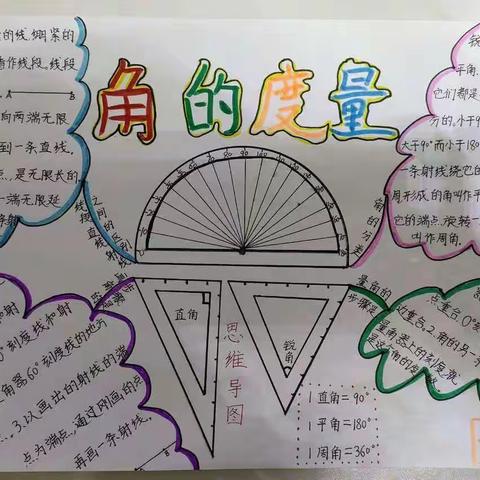 角的度量
的线.绷紧的
作线段。线段
A B
向两端无限
到一条直线,
点,是无限长的
一端无限延
线段直线射线
之间的区别
角的分类
锐
平角、
它们都是
分的。小于9
大于90°而小于180
一条射线绕它的
周形成的角叫作平
它的端点,按转一
叫作周角.
0°刻度线和射
角器60°刻度线的地方
点.3.以画出的射线的端
点为端点,通过刚画的点
再画一条射线。
直角
锐角
思维导图
量角的
步骤是
点重合.0°
边重合.2.角的另一
量角器上的刻度.就
是这个角的度数
1直角=90°
1平角=180°
1周角=360°